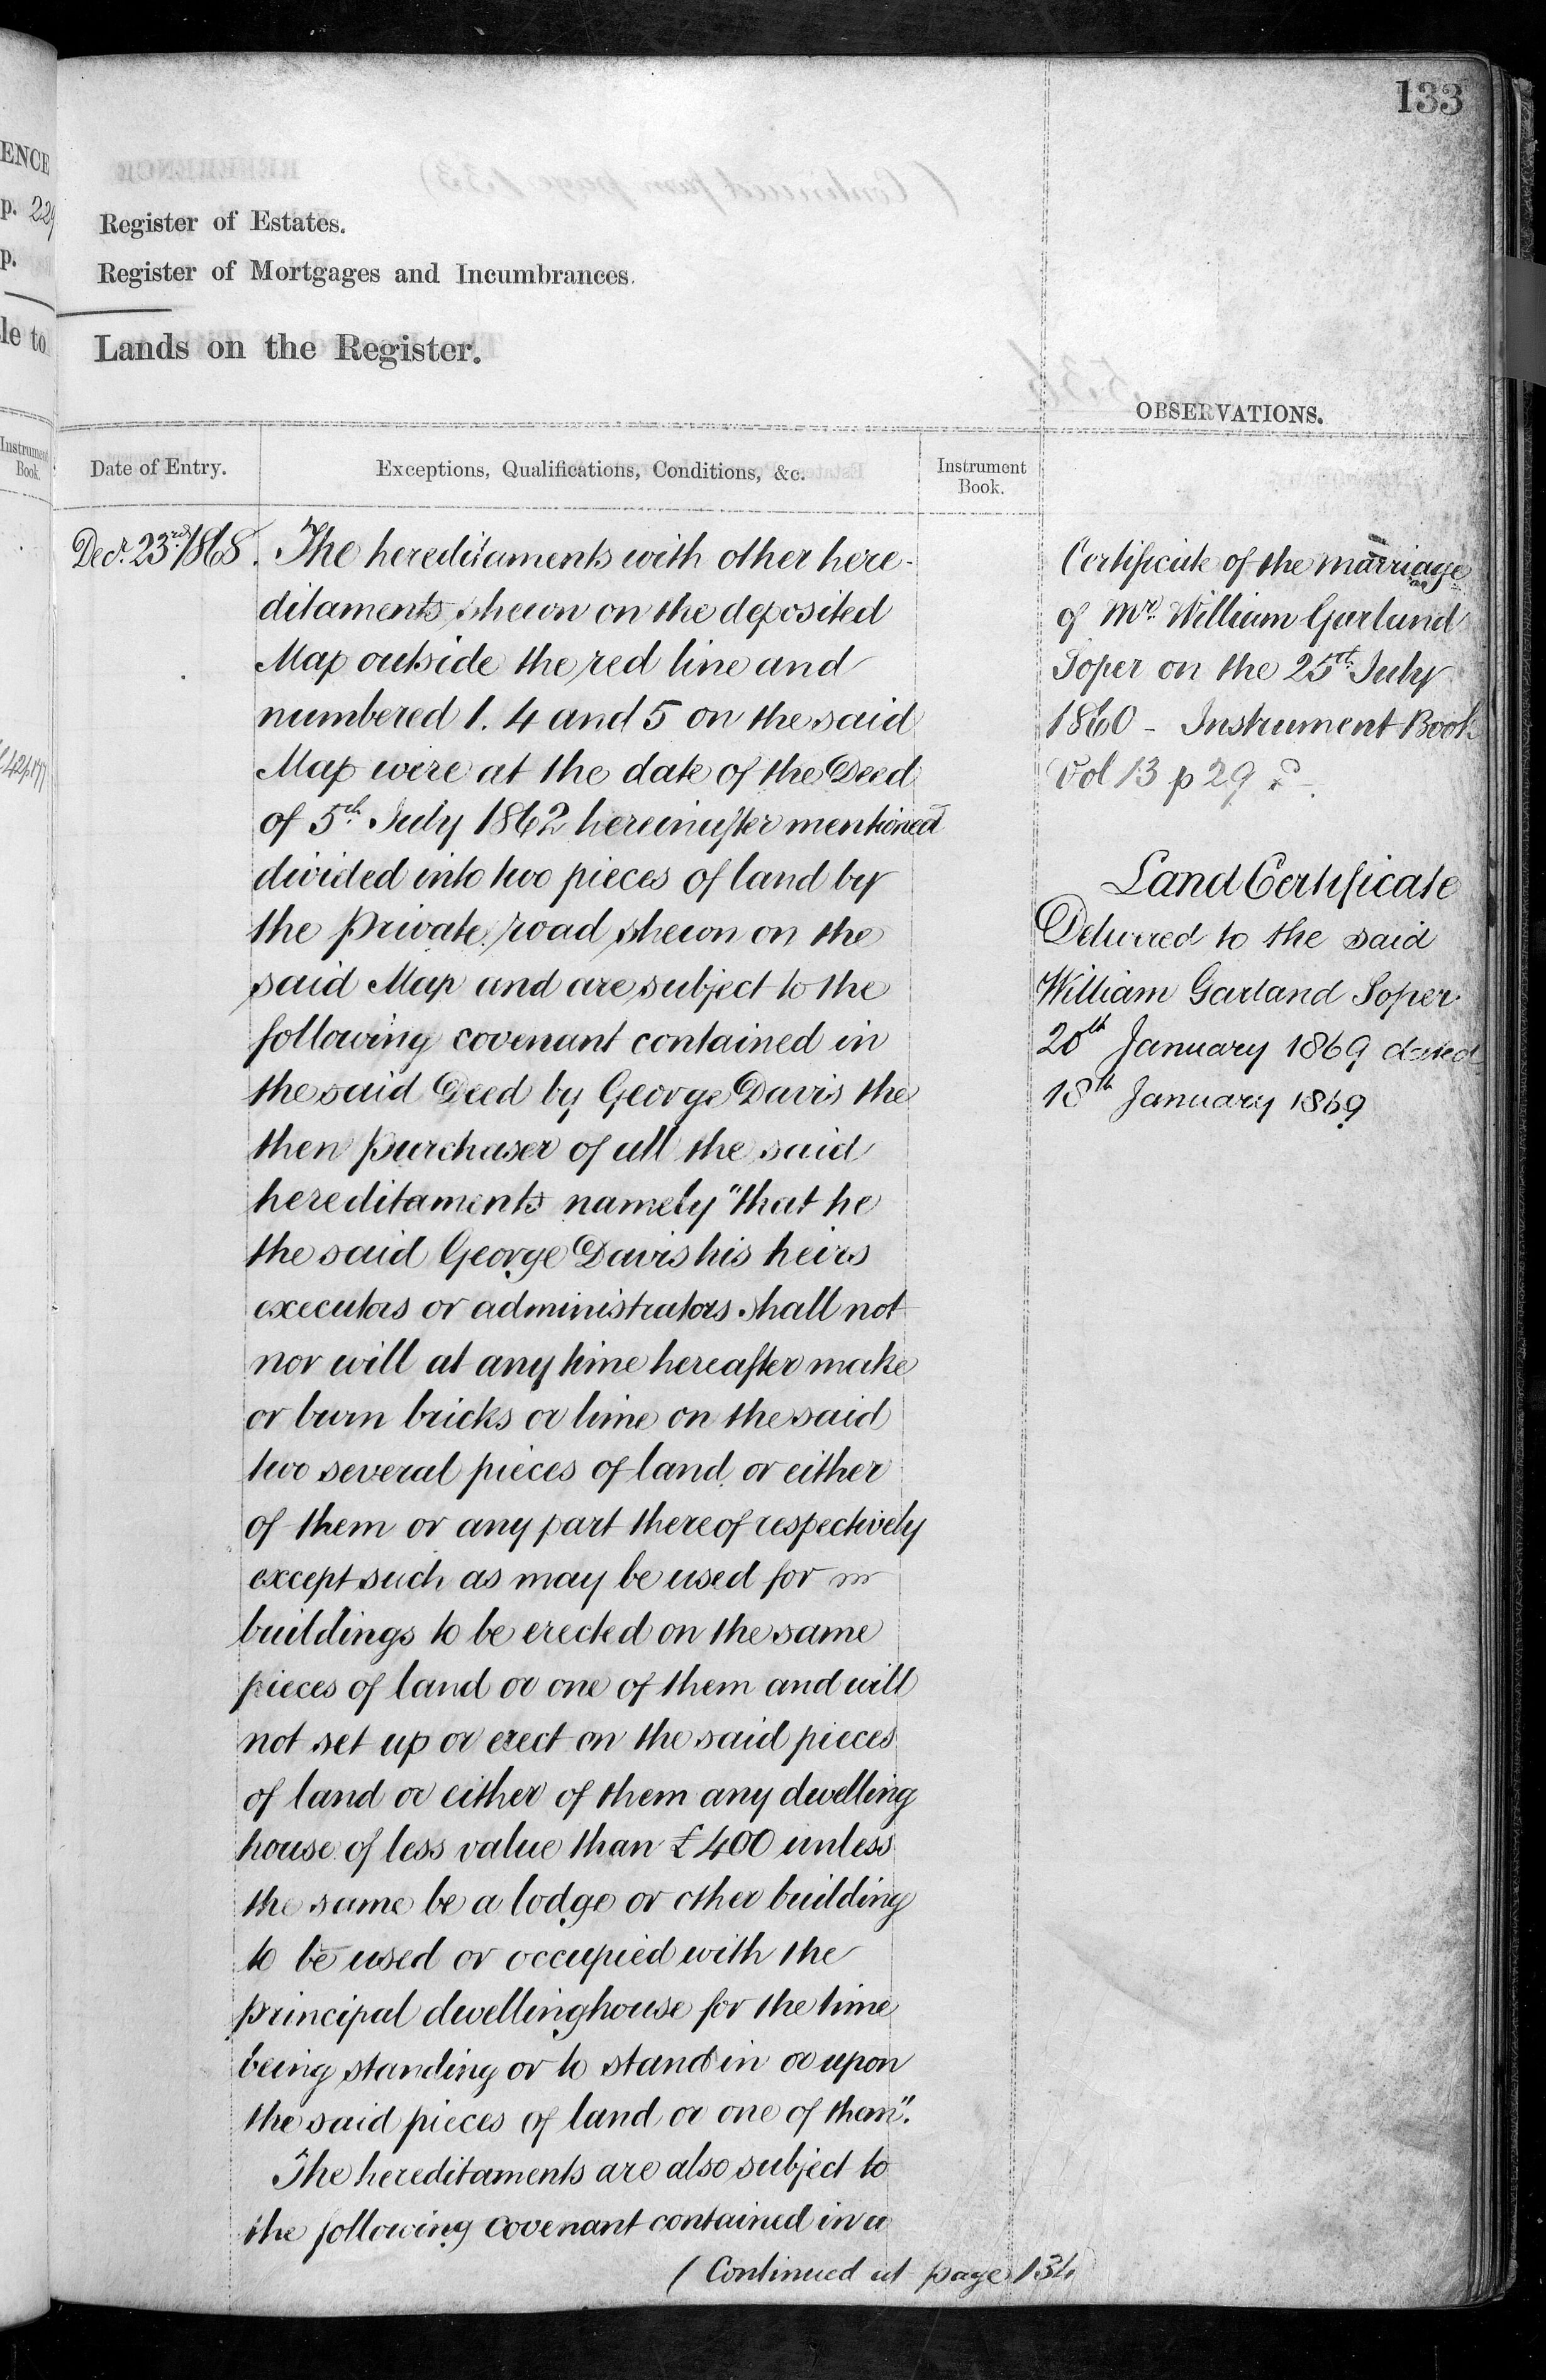 133
ENCE
p. 229
p.
le to
Instrument
Book.
Register of Estates.
Register of Mortgages and Incumbrances.
Lands on the Register.
OBSERVATIONS.
Date of Entry.
Exceptions, Qualifications, Conditions, &c.
Instrument
Book.
Decr. 23rd 1868.
The hereditaments with other here-
ditaments shewn on the deposited
Map outside the red line and
numbered 1. 4 and 5 on the said
Map were at the date of the Deed
of 5th July 1862 hereinafter mentioned
divided into two pieces of land by
the private road shewn on the
said Map and are subject to the
following covenant contained in
the said Deed by George Davis the
then purchaser of all the said
hereditaments namely "that he
the said George Davis his heirs
executors or administrators shall not
nor will at any time hereafter make
or burn bricks or lime on the said
two several pieces of land or either
of them or any part thereof respectively
except such as may be used for
buildings to be erected on the same
pieces of land or one of them and will
not set up or erect on the said pieces
of land or either of them any dwelling
house of less value than £400 unless
the same be a lodge or other building
to be used or occupied with the
principal dwellinghouse for the time
being standing or to stand in or upon
the said pieces of land or one of them".
The hereditaments are also subject to
the following covenant contained in a
(Continued at page 134
Certificate of the marriage
of Mr. William Garland
Soper on the 25th July
1860 - Instrument Book
Vol 13 p 29
Land Certificate
Delivered to the said
William Garland Soper
20th January 1869 dated
18th January 1869